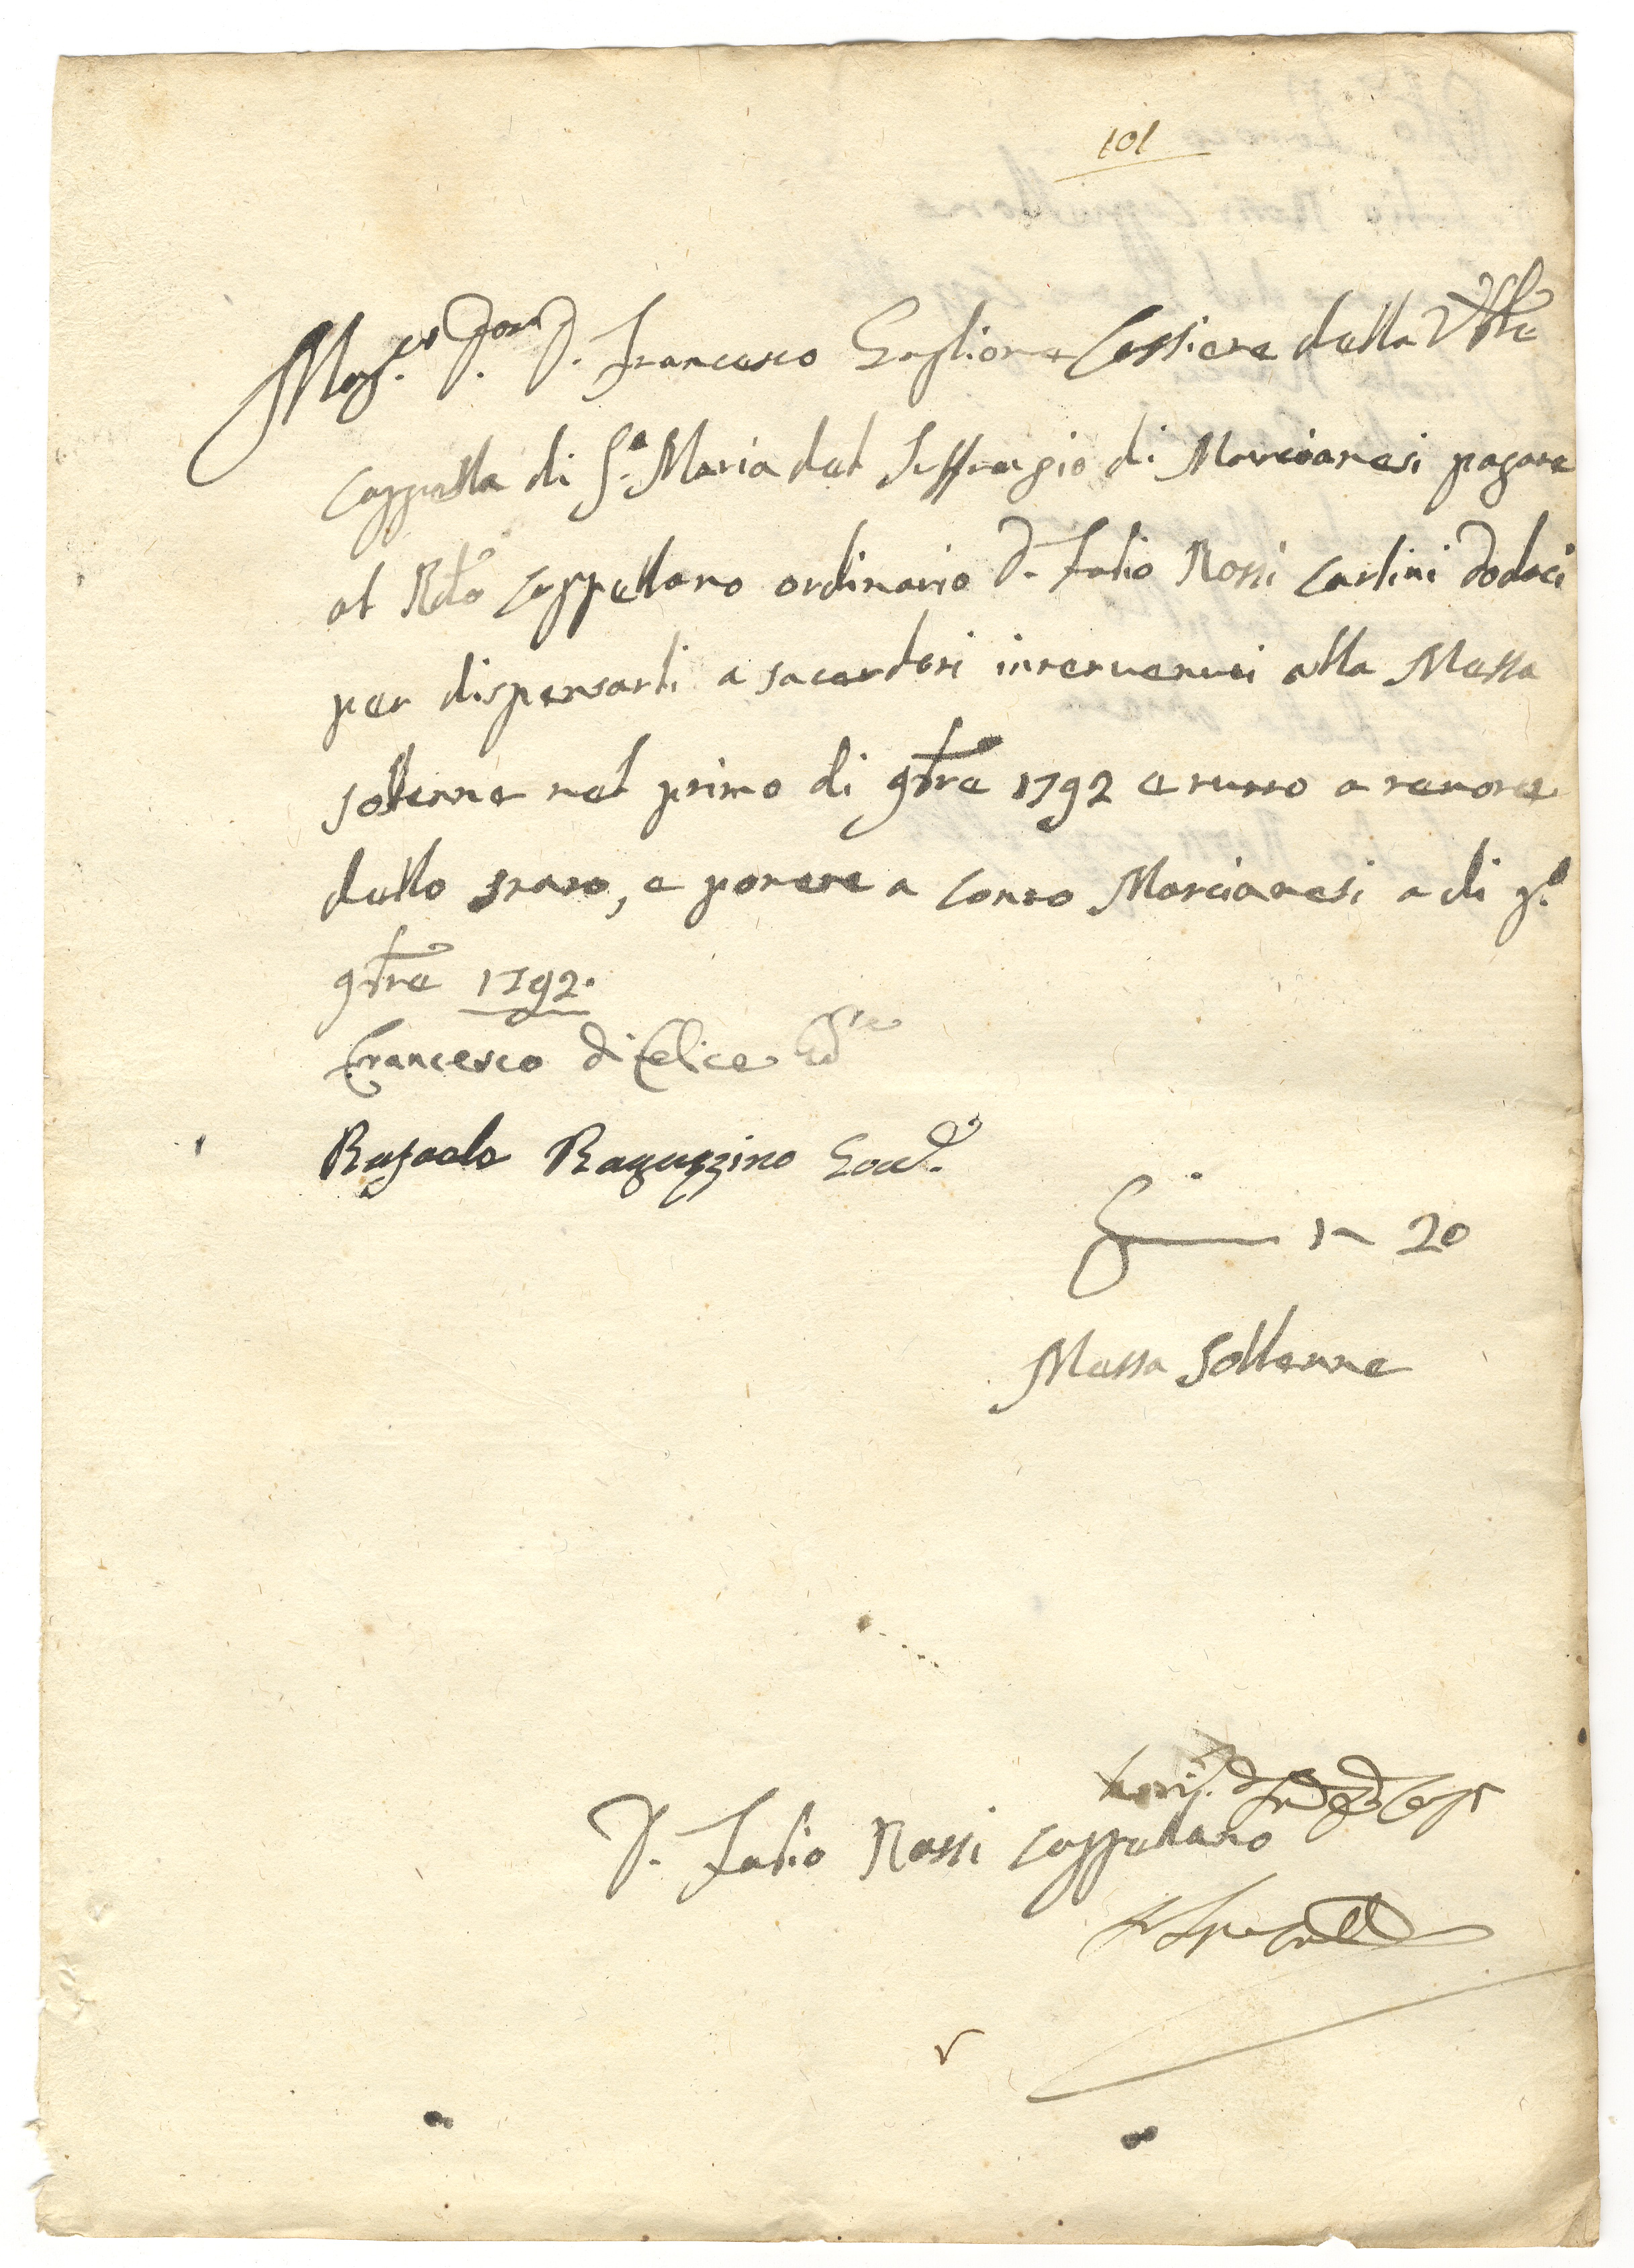 101
Mag.co Sig.r D. Francesco Gaglione Cassiere della Vble
Cappella di S.a Maria del Suffragio di Marcianesi pagare
al Rdo Cappellano ordinario D. Fabio Rossi Carlini dodeci
per dispensarli a sacerdoti intervenuti alla Messa
sollenne nel primo di 9bre 1792 e tutto a tenore
dello stato, e ponere a conto Marcianesi a di p.o
9bre 1792.
Francesco di Felice
Rafaele Ragazzino Gov.
1 ~ 20
Messa Sollenne
D. Fabio Rossi Cappellano